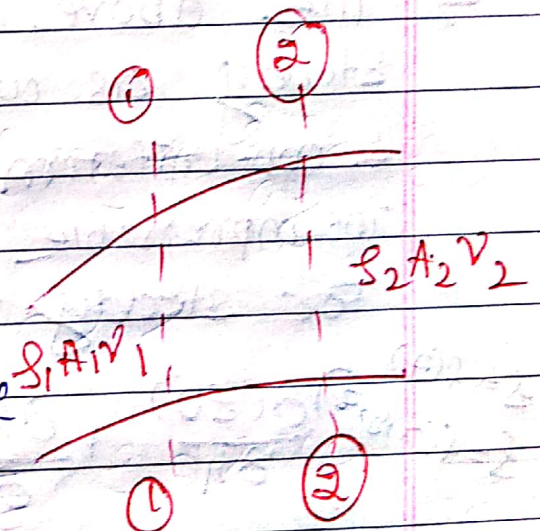 ① ②
ρ₂A₂V₂
ρ₁A₁V₁
① ②